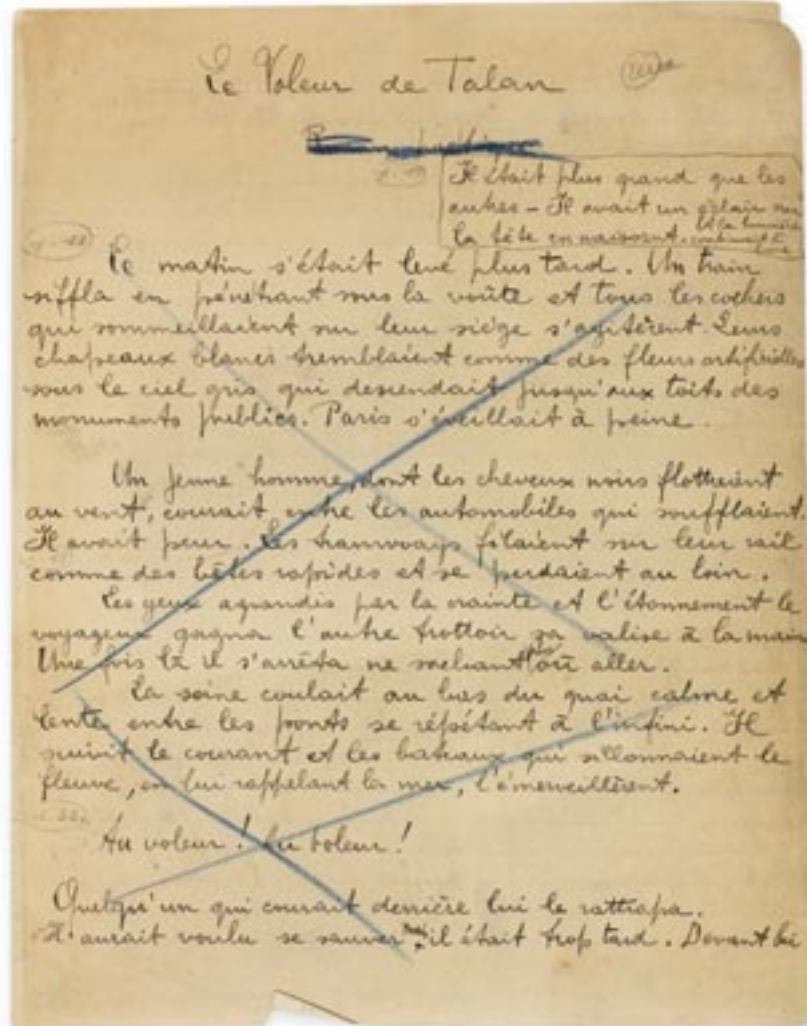 Le Voleur de Talan
Il était plus grand que les
autres – Il avait un éclair sur
la tête en naissant.
Ce matin s'était levé plus tard. Un train
siffla en pénétrant sous la voûte et tous les cochers
qui sommeillaient sur leur siège s'agitèrent. Leurs
chapeaux blancs tremblaient comme des fleurs artificielles
sous le ciel gris qui descendait jusqu'aux toits des
monuments publics. Paris s'éveillait à peine.
Un jeune homme, dont les cheveux noirs flottaient
au vent, courait entre les automobiles qui soufflaient.
Il avait peur. Les tramways filaient sur leur rail
comme des bêtes rapides et se perdaient au loin.
Les yeux agrandis par la crainte et l'étonnement le
voyageur gagna l'autre trottoir sa valise à la main
Une fois là il s'arrêta ne sachant où aller.
La seine coulait au bas du quai calme et
lente entre les ponts se répétant à l'infini. Il
suivit le courant et les bateaux qui sillonnaient le
fleuve, en lui rappelant la mer, l'émerveillèrent.
Au voleur ! Au voleur !
Quelqu'un qui courait derrière lui le rattrapa.
Il aurait voulu se sauver mais il était trop tard. Devant lui